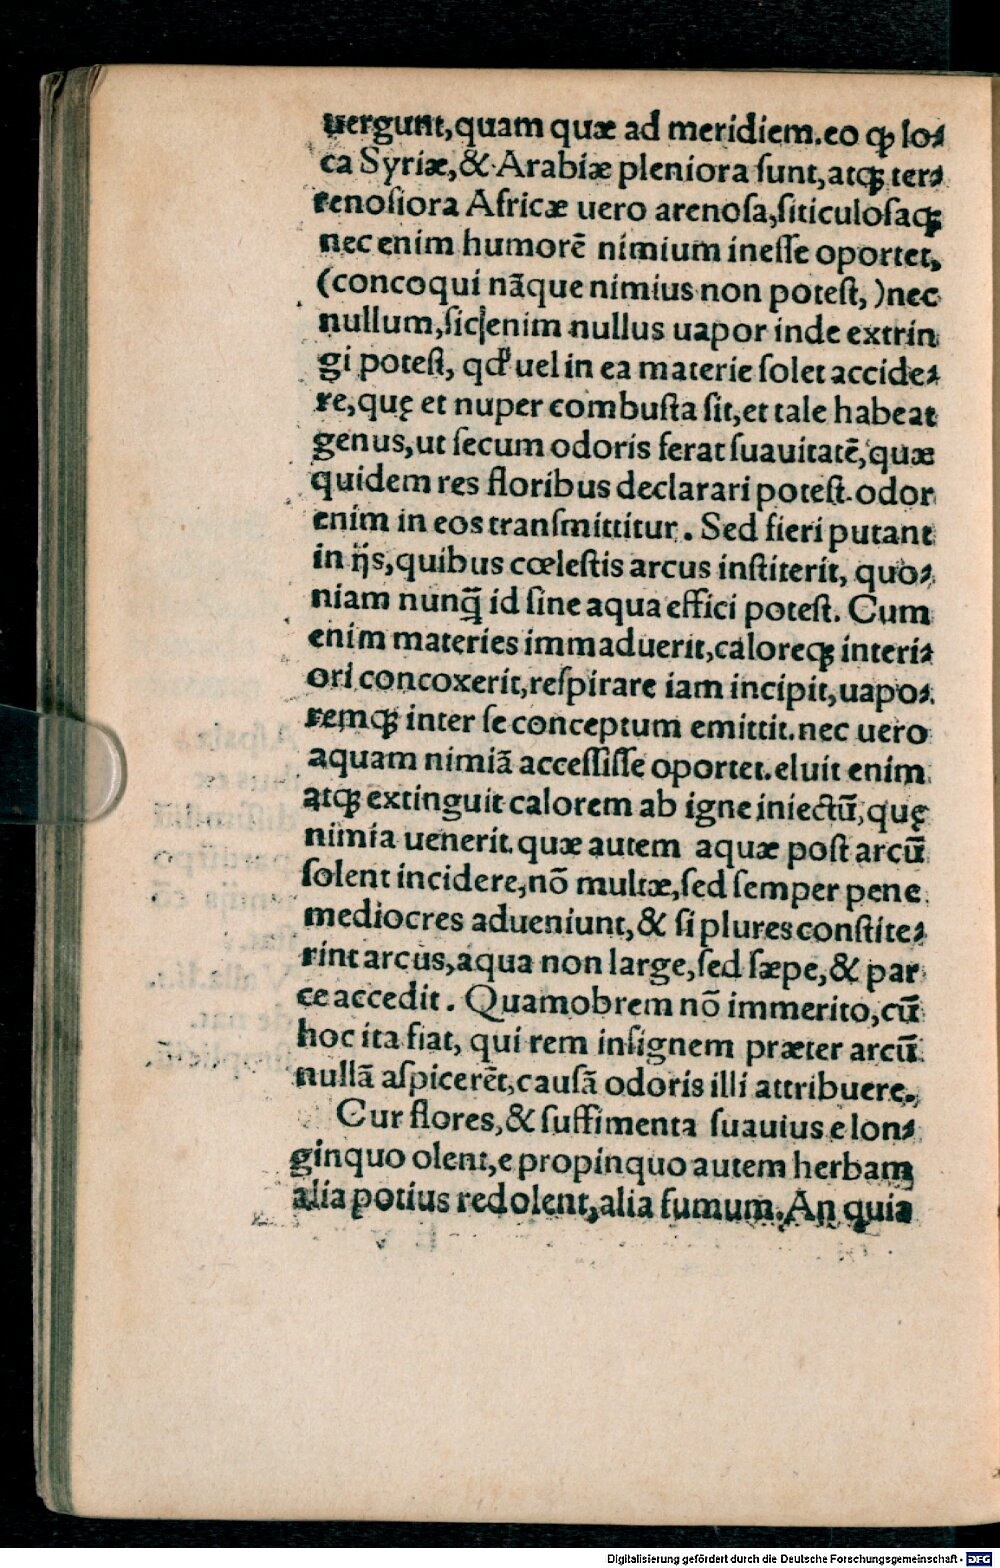 uergunt,quam quæ ad meridiem.eo ꝙ lo⸗
ca Syriæ,& Arabiæ pleniora ſunt,atqꝫ ter⸗
renoſiora Africæ uero arenoſa,ſiticuloſaqꝫ
nec enim humorē nimium ineſſe oportet,
(concoqui nāque nimius non poteſt, )nec
nullum,ſic enim nullus uapor inde extrin
gi poteſt, qđ uel in ea materie ſolet accide⸗
re,quę et nuper combuſta ſit,et tale habeat
genus,ut ſecum odoris ferat ſuauitatē,quæ
quidem res floribus declarari poteſt.odor
enim in eos tranſmittitur. Sed fieri putant
in ijs,quibus cœleſtis arcus inſtiterit, quo⸗
niam nunq̃ id ſine aqua effici poteſt. Cum
enim materies immaduerit,caloreqꝫ interi⸗
ori concoxerit,reſpirare iam incipit,uapo⸗
remqꝫ inter ſe conceptum emittit.nec uero
aquam nimiā acceſſiſſe oportet.eluit enim
atqꝫ extinguit calorem ab igne iniectū,quę
nimia uenerit.quæ autem aquæ poſt arcū
ſolent incidere,nō multæ,ſed ſemper pene
mediocres adueniunt,& ſi plures conſtite⸗
rint arcus,aqua non large,ſed ſæpe,& par
ce accedit. Quamobrem nō immerito,cū
hoc ita fiat, qui rem inſignem præter arcū
nullā aſpicerēt,cauſā odoris illi attribuere.
Cur flores,& ſuffimenta ſuauius e lon⸗
ginquo olent,e propinquo autem herbam
alia potius redolent,alia fumum.An quia
Digitalisierung gefördert durch die Deutsche Forschungsgemeinschaft - DFG